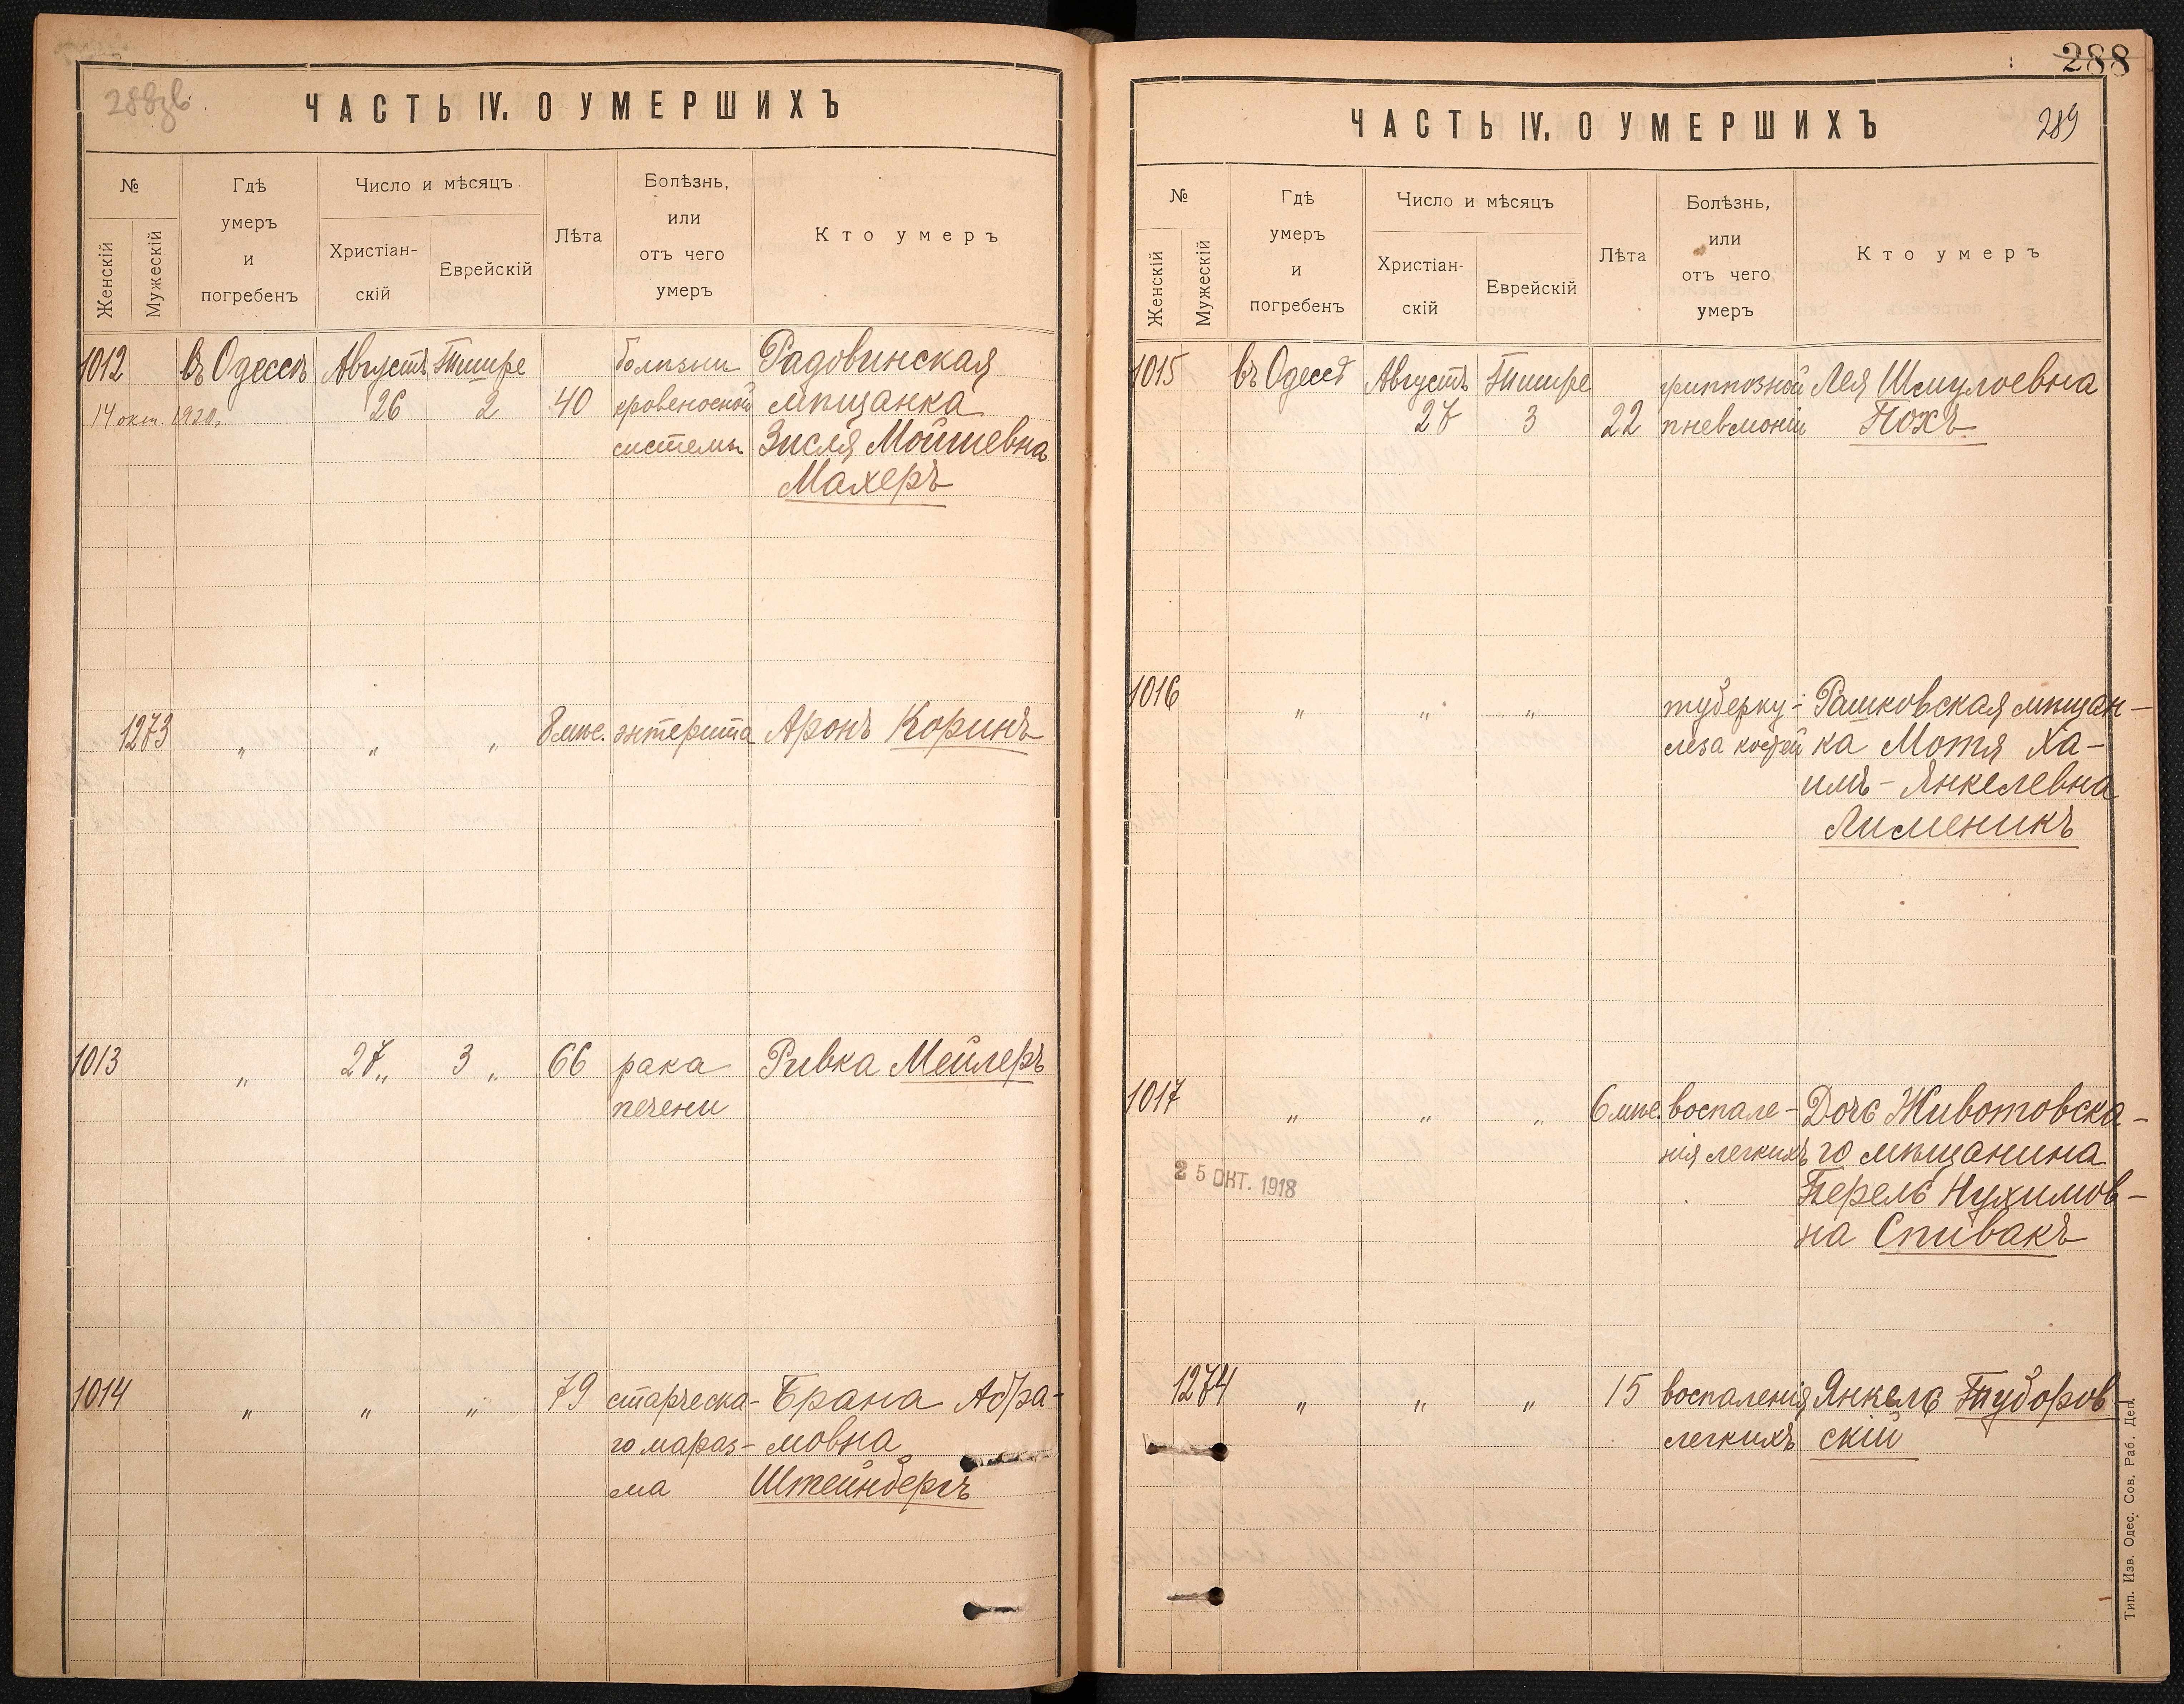 288
288зв.
ЧАСТЬ IV. О УМЕРШИХЪ
№
Женскій
Мужескій
Гдѣ
умеръ
и
погребенъ
Число и мѣсяцъ
Христіан-
скій
Еврейскій
Лѣта
Болѣзнь,
или
отъ чего
умеръ
Кто умеръ
1012 въ Одессѣ Августъ Тишре болѣзни Радовинская
14 окт. 1920. 26 2 40 кровеносной мѣщанка
системы Зисля Мойшевна
Махеръ
1273 " " " 8 мѣс. энтерита Аронъ Коринъ
1013 " 27 " 3 " 66 рака Ривка Мейлеръ
печени
1014 " " " 79 старческа- Брана Абра-
го мараз- мовна
ма Штейнбергъ
ЧАСТЬ IV. О УМЕРШИХЪ
289
№
Женскій
Мужескій
Гдѣ
умеръ
и
погребенъ
Число и мѣсяцъ
Христіан-
скій
Еврейскій
Лѣта
Болѣзнь,
или
отъ чего
умеръ
Кто умеръ
1015 въ Одессѣ Августъ Тишре гриппозной Лея Шмулоевна
27 3 22 пневмоніи Похъ
1016 " " " туберку- Рашковская мѣщан-
леза костей ка Мотя Ха-
имъ-Янкелевна
Лименикъ
1017 " " " 6 мѣс. воспале- Дочь Животовска-
нія легкихъ го мѣщанина
25 ОКТ. 1918
Перель Нухимов-
на Спивакъ
1274 " " " 15 воспаленія Янкель Тудоров-
легкихъ скій
Тип. Изв. Одес. Сов. Раб. Деп.